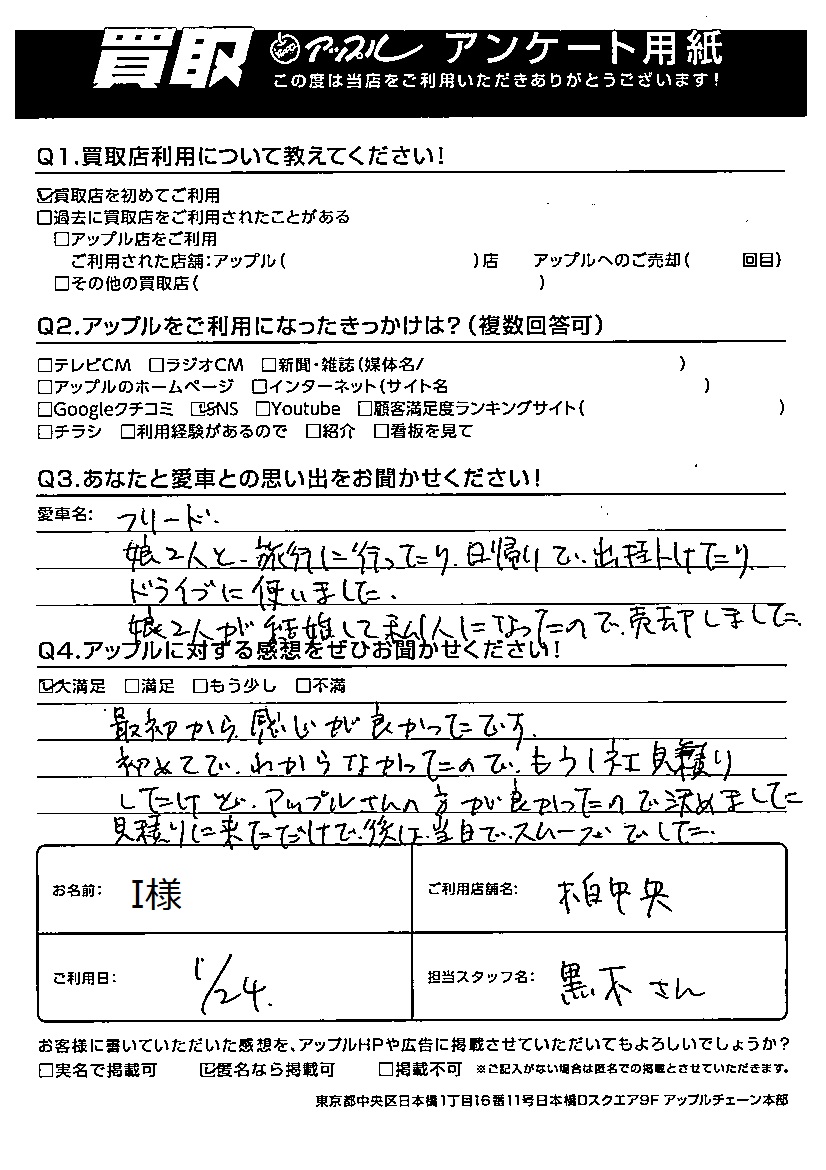 買取 アップル アンケート用紙
この度は当店をご利用いただきありがとうございます!
Q1.買取店利用について教えてください!
☑買取店を初めてご利用
□過去に買取店をご利用されたことがある
□アップル店をご利用
ご利用された店舗:アップル( )店 アップルへのご売却( 回目)
□その他の買取店( )
Q2.アップルをご利用になったきっかけは?(複数回答可)
□テレビCM □ラジオCM □新聞・雑誌(媒体名/ )
□アップルのホームページ □インターネット(サイト名 )
□Googleクチコミ ☑SNS □Youtube □顧客満足度ランキングサイト( )
□チラシ □利用経験があるので □紹介 □看板を見て
Q3.あなたと愛車との思い出をお聞かせください!
愛車名: フリード.
娘2人と、旅行に行ったり、日帰りで、出掛けたり
ドライブに使いました.
娘2人が結婚して私1人になったので、売却しました.
Q4.アップルに対する感想をぜひお聞かせください!
☑大満足 □満足 □もう少し □不満
最初から、感じが良かったです.
初めてで、わからなかったので、もう1社見積り
したけど、アップルさんの方が良かったので決めました
見積りに来ただけで、後は、当日で、スムーズでした.
お名前: I様
ご利用店舗名: 柏中央
ご利用日: 1/24.
担当スタッフ名: 黒木さん
お客様に書いていただいた感想を、アップルHPや広告に掲載させていただいてもよろしいでしょうか?
□実名で掲載可 ☑匿名なら掲載可 □掲載不可 ※ご記入がない場合は匿名での掲載とさせていただきます。
東京都中央区日本橋1丁目16番11号日本橋Dスクエア9F アップルチェーン本部